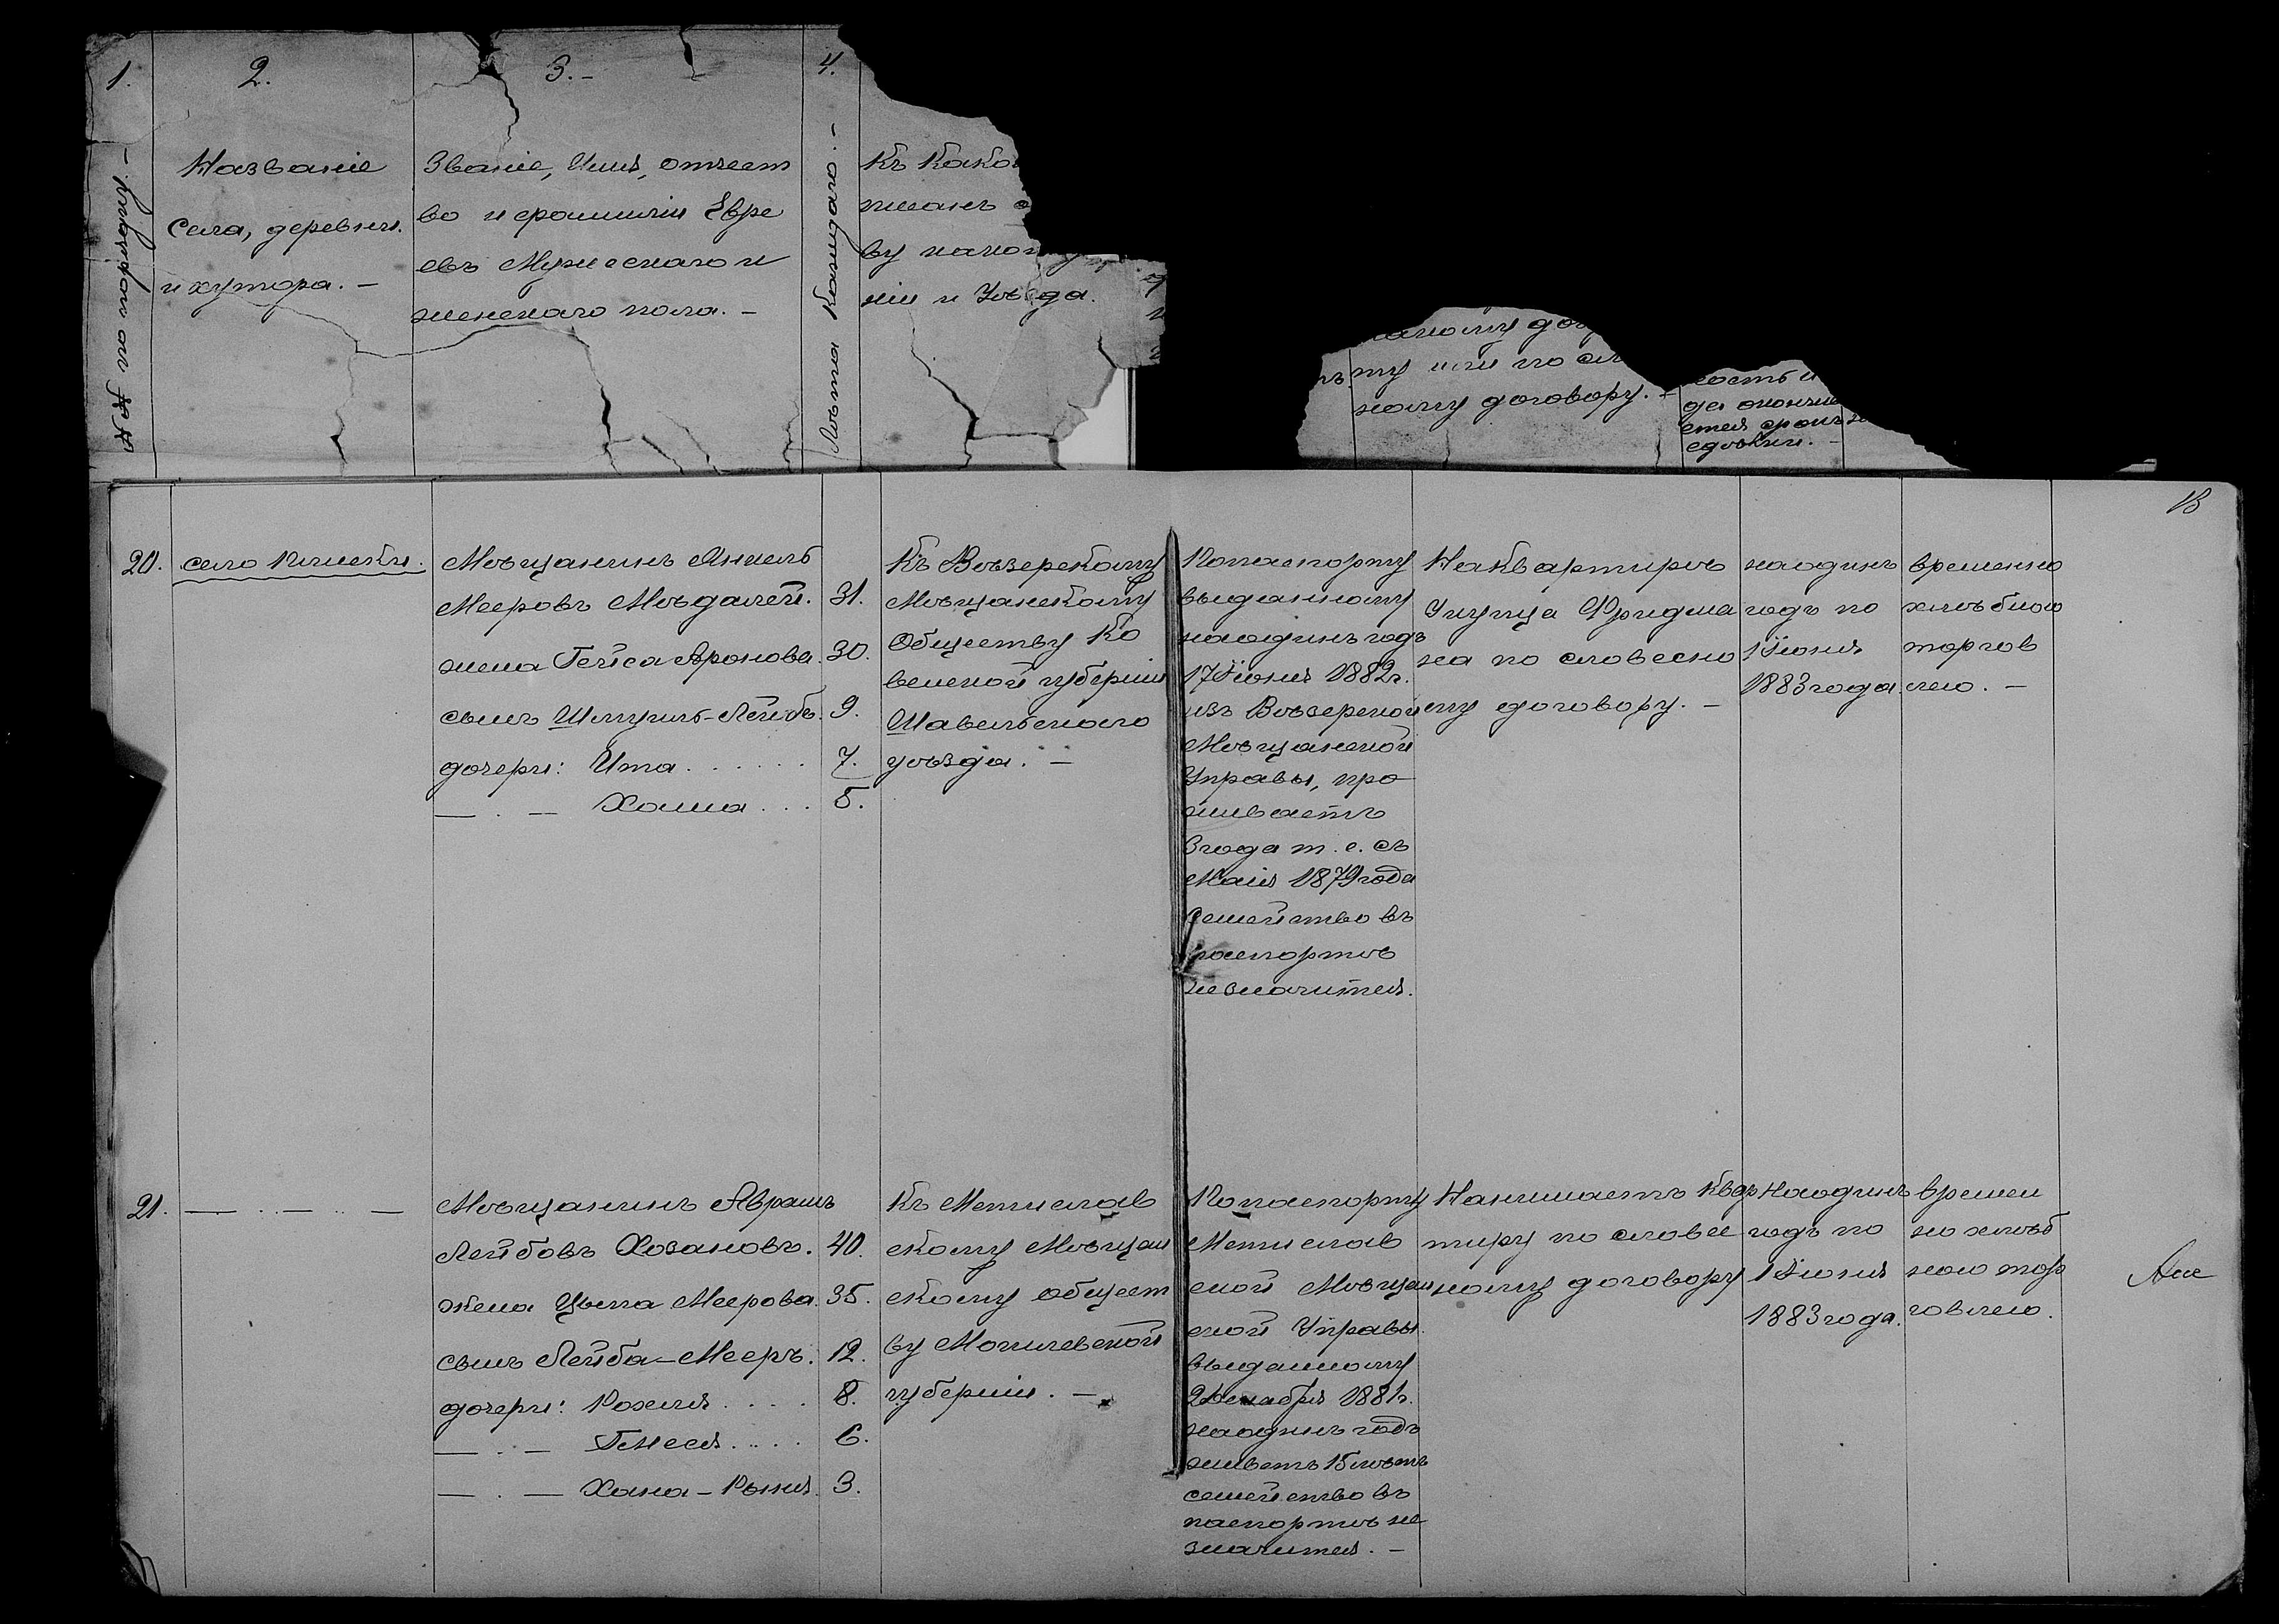 1.
№№ по порядку. –
2.
Названіе
села, деревни
и хутора. –
3. –
Званіе, Имя, отчест
во и фамиліи Евре
евъ Мужескаго и
женскаго пола. –
4.
Лѣта каждаго. –
Къ како
писанъ
ву како
ніи и Уѣзда.
ту или по сл
ному договору. –
ность и
да окончи
ется срокъ
сдѣлки. –
13
20.
село Клишки.
Мѣщанинъ Янкель
Мееровъ Мѣдалей. 31.
жена Гейса Аронова. 30.
сынъ Шмуиль-Лейбъ. 9.
дочери: Ита . . . . . . 7.
— . — Хаша . . . 5.
Къ Вѣзерскому
Мѣщанскому
Обществу Ко
венской губерніи
Шавельскаго
уѣзда. –
По паспорту
выданному
на одинъ годъ
17 Іюня 1882 г.
изъ Вѣзерской
Мѣщанской
Управы, про
живаетъ
3 года т. е. съ
Маія 1879 года
семейство въ
паспортѣ
не значится.
На квартирѣ
у купца Фридма
на по словесно
му договору. –
на одинъ
годъ по
1 Іюня
1883 года.
временно
хлѣбною
торгов
лею. –
21. — . . — . —
Мѣщанинъ Абрамъ
Лейбовъ Хозановъ. 40.
жена Цыпа Меерова. 35.
сынъ Лейба-Мееръ. 12.
дочери: Рохля . . . . 8.
— . — Генеся . . . . 6.
— . — Хана-Рыня. 3.
Къ Мстислав
скому Мѣщан
скому общест
ву Могилевской
губерніи. –
По паспорту
Мстислав
ской Мѣщан
ской Управы.
выданному
2 Декабря 1881 г.
на одинъ годъ
живетъ 15 лѣтъ
семейство въ
паспортѣ не
значится. –
Нанимаетъ квар
тиру по словес
ному договору
На одинъ
годъ по
1 Іюня
1883 года.
времен
но хлѣб
ною тор
говлею.